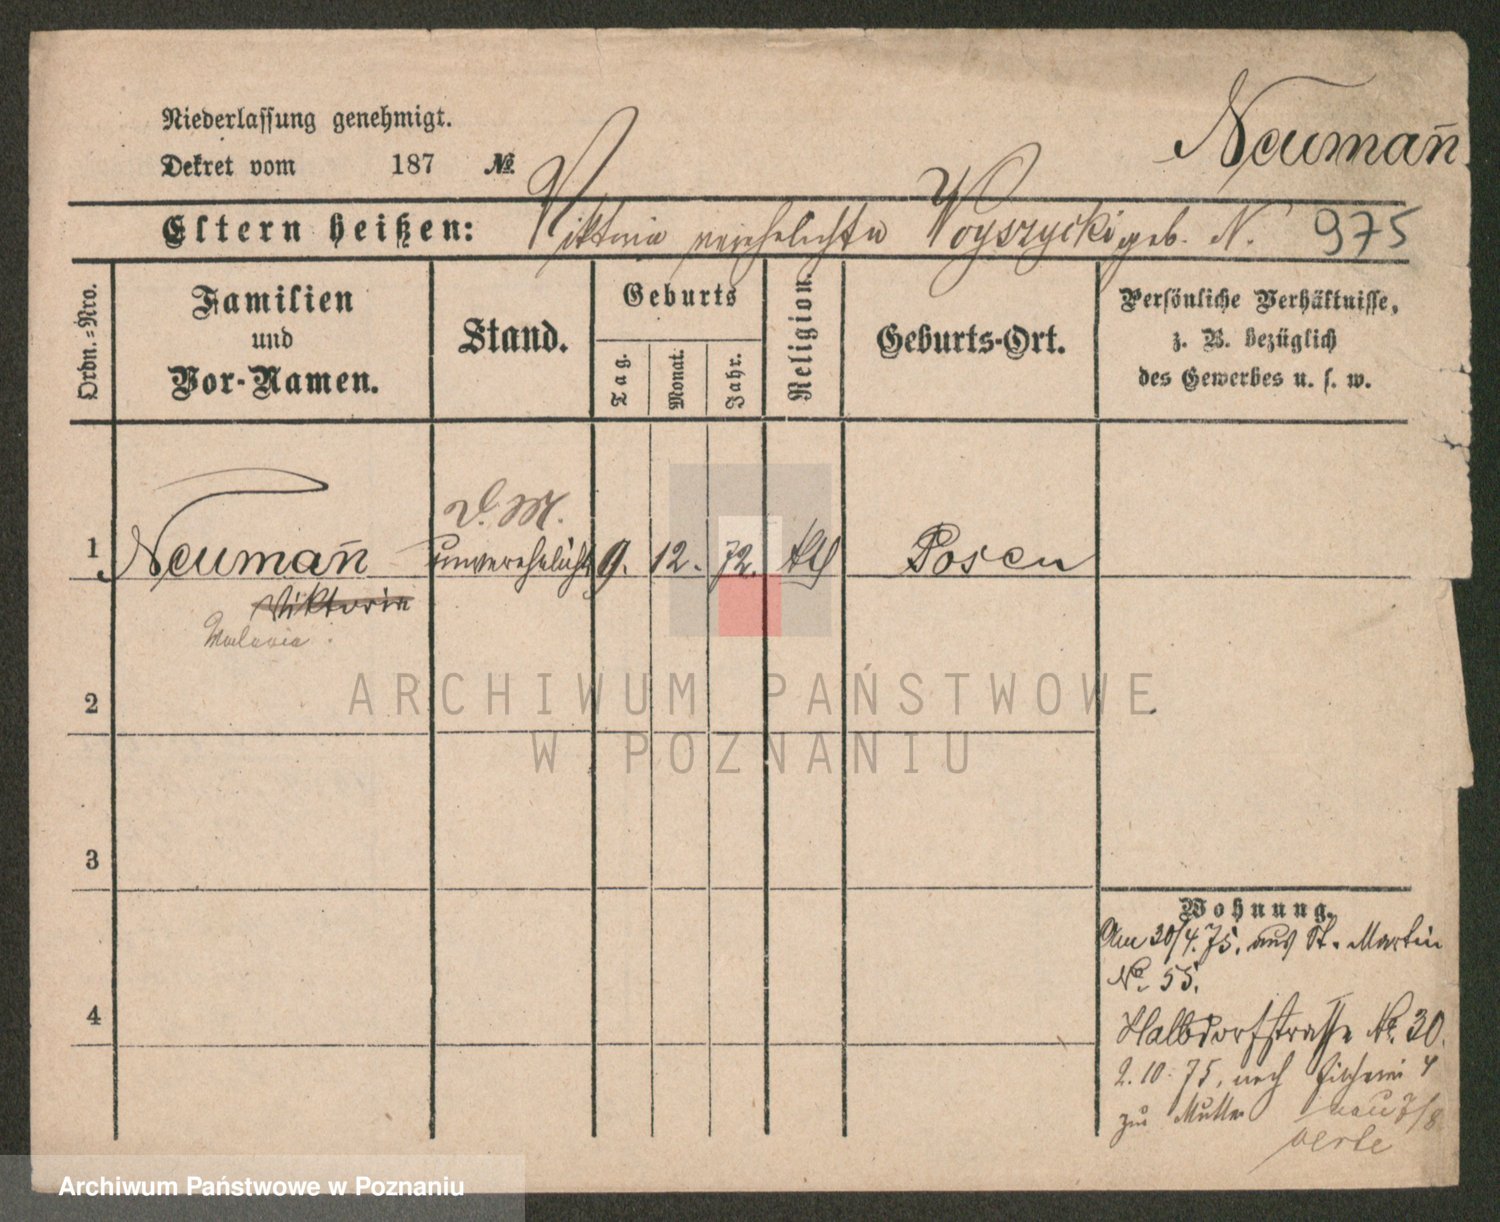 Neumañ
Niederlassung genehmigt.
Dekret vom 187 №
Eltern heißen: Viktoria verehelichte Woyszycki geb. N. 975
Ordn.=Nro.
Familien
und
Vor-Namen.
Stand.
Geburts
Tag.
Monat.
Jahr.
Religion.
Geburts-Ort.
Persönliche Verhältnisse,
z. B. bezüglich
des Gewerbes u. s. w.
D. M.
1 Neumañ unverehelicht 9. 12. 72. kth Posen
Viktoria
2
3
4
Wohnung.
Am 30/4. 75. aus St. Martin
No. 55.
Halbdorfstrasse No. 30.
2. 10. 75, nach Fischerei 4
zur Mutter
ARCHIWUM PAŃSTWOWE
W POZNANIU
Archiwum Państwowe w Poznaniu